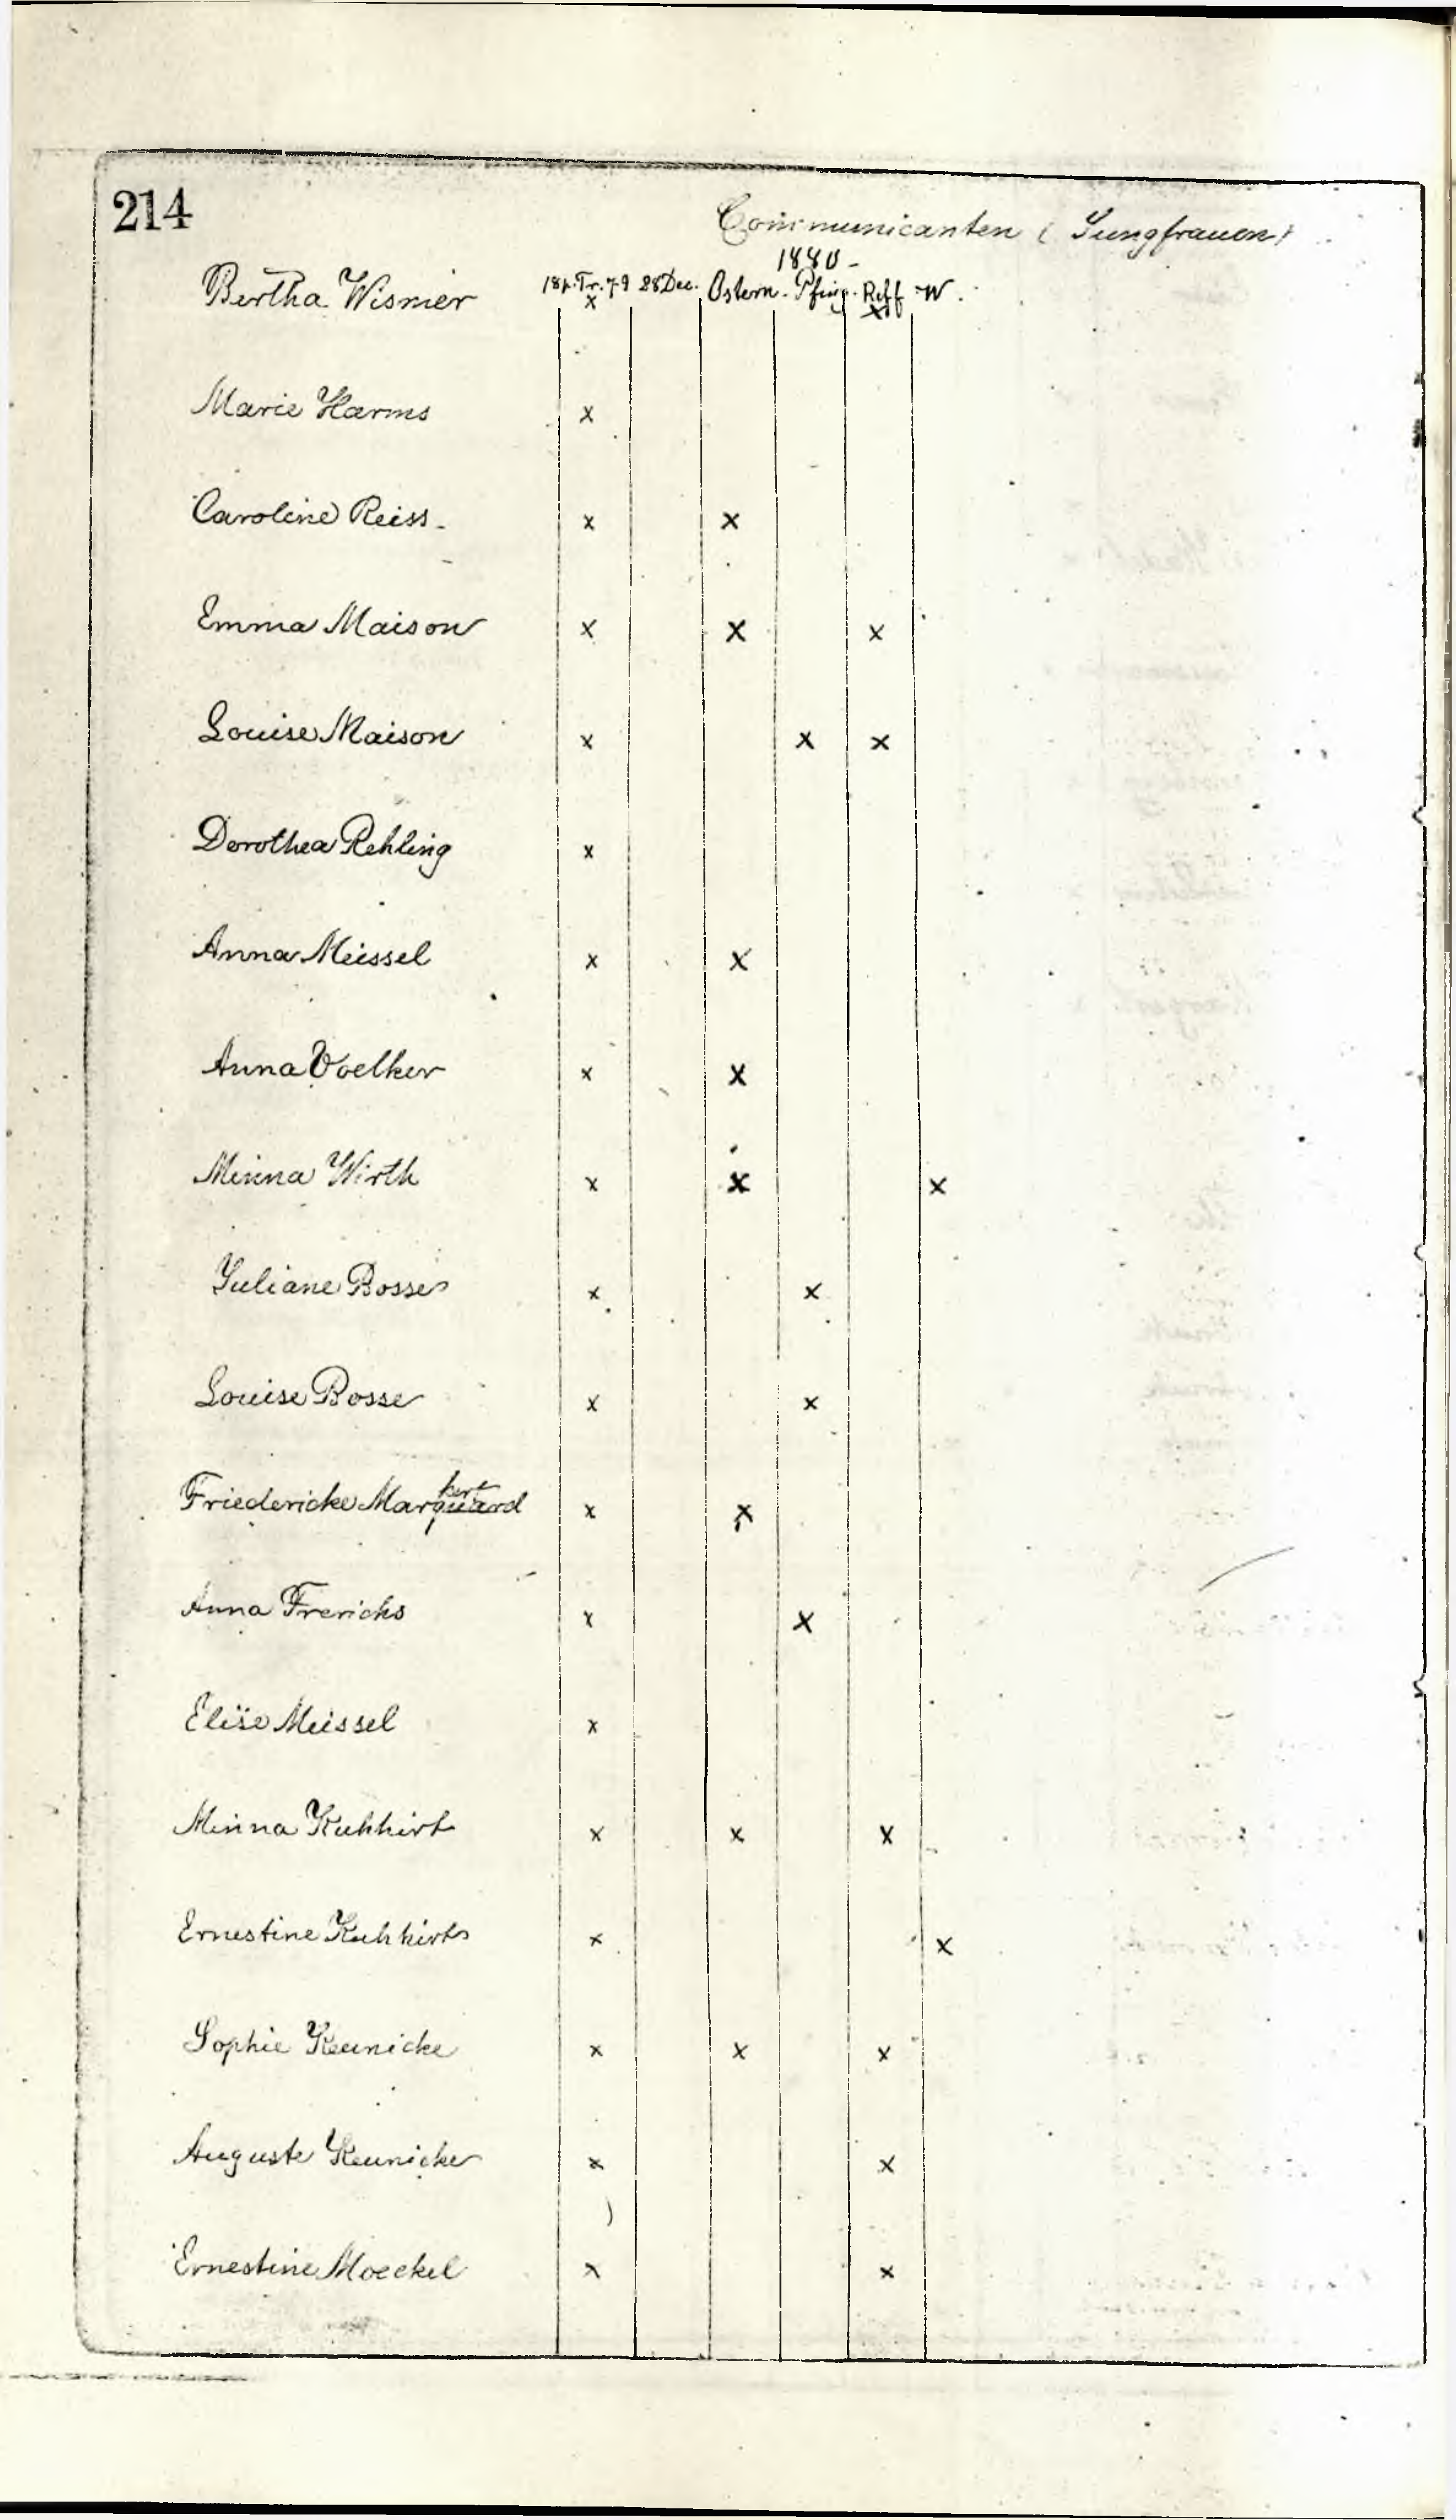 214
Communicanten (Jungfrauen)
1880 -
18 p. Tr. 79 28 Dec. Ostern. Pfing. Reff W.
Bertha Wismer x x
Marie Harms x
Caroline Reiss x x
Emma Maison x x x
Louise Maison x x x
Dorothea Rehling x
Anna Meissel x x
Anna Voelker x x
Minna Wirth x x x
Juliane Bosse x x
Louise Bosse x x
kert
Friedericke Marquard x x
Anna Frerichs x x
Elise Meissel x
Minna Kuhhirt x x x
Ernestine Kuhhirt x x
Sophie Keunicke x x x
Auguste Keunicke x x
Ernestine Moeckel x x